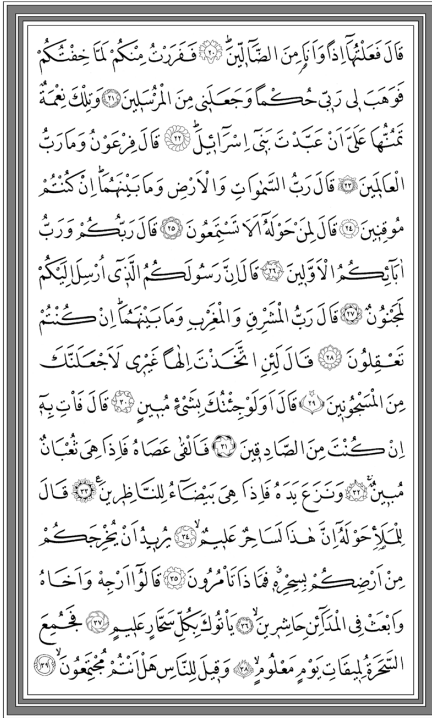 قَالَ فَعَلْتُهَٓا اِذًا وَاَنَا۬ مِنَ الضَّٓالّ۪ينَۜ ﴿٢٠﴾ فَفَرَرْتُ مِنْكُمْ لَمَّا خِفْتُكُمْ
فَوَهَبَ ل۪ي رَبّ۪ي حُكْمًا وَجَعَلَن۪ي مِنَ الْمُرْسَل۪ينَ ﴿٢١﴾ وَتِلْكَ نِعْمَةٌ
تَمُنُّهَا عَلَيَّ اَنْ عَبَّدْتَ بَن۪ٓي اِسْرَٓائ۪لَۜ ﴿٢٢﴾ قَالَ فِرْعَوْنُ وَمَا رَبُّ
الْعَالَم۪ينَ ﴿٢٣﴾ قَالَ رَبُّ السَّمٰوَاتِ وَالْاَرْضِ وَمَا بَيْنَهُمَاۜ اِنْ كُنْتُمْ
مُوقِن۪ينَ ﴿٢٤﴾ قَالَ لِمَنْ حَوْلَهُٓ اَلَا تَسْتَمِعُونَ ﴿٢٥﴾ قَالَ رَبُّكُمْ وَرَبُّ
اٰبَٓائِكُمُ الْاَوَّل۪ينَ ﴿٢٦﴾ قَالَ اِنَّ رَسُولَكُمُ الَّذ۪ٓي اُرْسِلَ اِلَيْكُمْ
لَمَجْنُونٌ ﴿٢٧﴾ قَالَ رَبُّ الْمَشْرِقِ وَالْمَغْرِبِ وَمَا بَيْنَهُمَاۜ اِنْ كُنْتُمْ
تَعْقِلُونَ ﴿٢٨﴾ قَالَ لَئِنِ اتَّخَذْتَ اِلٰهًا غَيْر۪ي لَاَجْعَلَنَّكَ
مِنَ الْمَسْجُون۪ينَ ﴿٢٩﴾ قَالَ اَوَلَوْ جِئْتُكَ بِشَيْءٍ مُب۪ينٍ ﴿٣٠﴾ قَالَ فَأْتِ بِه۪ٓ
اِنْ كُنْتَ مِنَ الصَّادِق۪ينَ ﴿٣١﴾ فَاَلْقٰى عَصَاهُ فَاِذَا هِيَ ثُعْبَانٌ
مُب۪ينٌۚ ﴿٣٢﴾ وَنَزَعَ يَدَهُ فَاِذَا هِيَ بَيْضَٓاءُ لِلنَّاظِر۪ينَ۟ ﴿٣٣﴾ قَالَ
لِلْمَلَأِ حَوْلَهُٓ اِنَّ هٰذَا لَسَاحِرٌ عَل۪يمٌۙ ﴿٣٤﴾ يُر۪يدُ اَنْ يُخْرِجَكُمْ
مِنْ اَرْضِكُمْ بِسِحْرِه۪ۗ فَمَاذَا تَأْمُرُونَ ﴿٣٥﴾ قَالُٓوا اَرْجِهْ وَاَخَاهُ
وَابْعَثْ فِي الْمَدَٓائِنِ حَاشِر۪ينَۙ ﴿٣٦﴾ يَأْتُوكَ بِكُلِّ سَحَّارٍ عَل۪يمٍ ﴿٣٧﴾ فَجُمِعَ
السَّحَرَةُ لِم۪يقَاتِ يَوْمٍ مَعْلُومٍۙ ﴿٣٨﴾ وَق۪يلَ لِلنَّاسِ هَلْ اَنْتُمْ مُجْتَمِعُونَۙ ﴿٣٩﴾